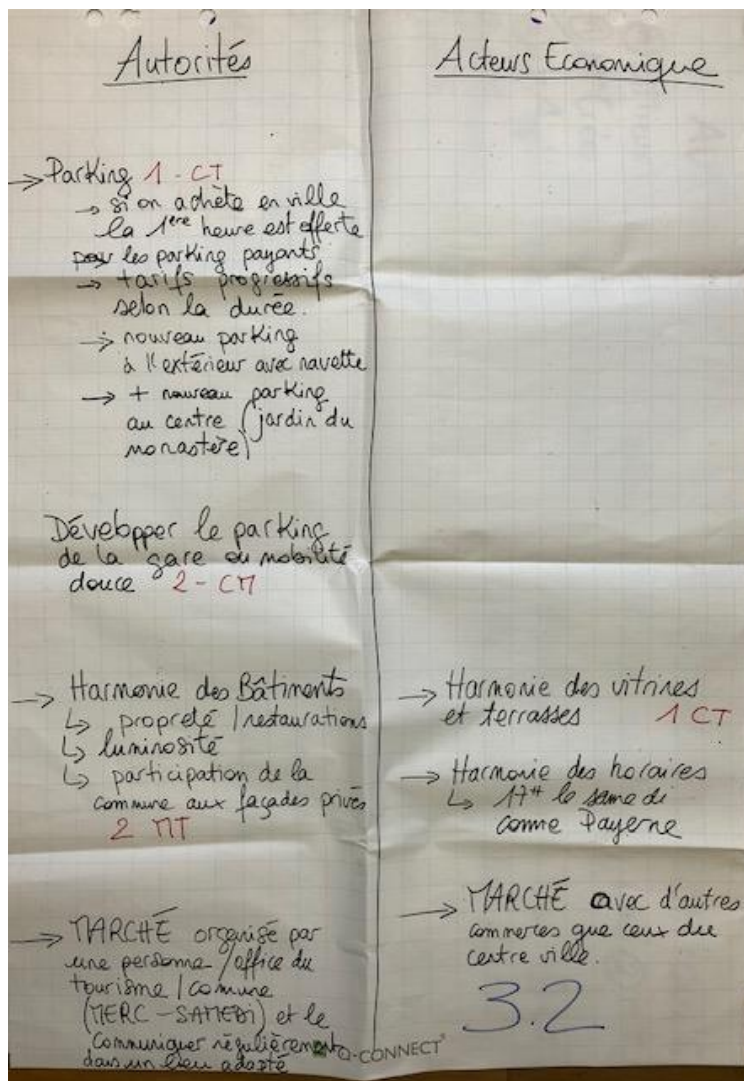 Autorités
→ Parking 1 - CT
→ si on achète en ville
la 1ère heure est offerte
pour les parking payants
→ tarifs progressifs
selon la durée.
→ nouveau parking
à l'extérieur avec navette
→ + nouveau parking
au centre (jardin du
monastère)
Développer le parking
de la gare ou mobilité
douce 2 - CM
→ Harmonie des Bâtiments
↳ propreté / restaurations
↳ luminosité
↳ participation de la
commune aux façades privés
2 MT
→ MARCHÉ organisé par
une personne / office du
tourisme / comune
(MERC - SAMEDI) et le
communiquer régulièrement
dans un lieu adapté
Acteurs Economique
→ Harmonie des vitrines
et terrasses 1 CT
→ Harmonie des horaires
↳ 17H le samedi
comme Payerne
→ MARCHÉ avec d'autres
commerces que ceux du
centre ville.
3.2
Q-CONNECT